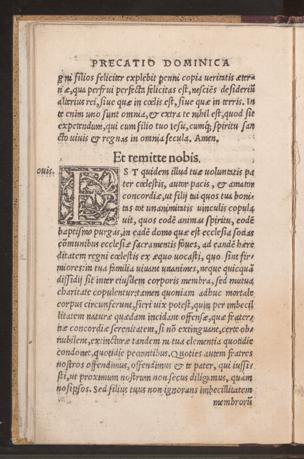 PRECATIO DOMINICA
gni filios feliciter explebit penni copia veritatis æter
næ, qua perfrui perfecta felicitas est, nesciēs desideriū
alterius rei, siue quæ in cœlis est, siue quæ in terris. In
te enim uno sunt omnia, & extra te nihil est, quod sit
expetendum, qui cum filio tuo Iesu, cumq; spiritu san
cto viuis & regnas in omnia secula. Amen.
Et remitte nobis.
ouis.
EST quidem illud tuæ voluntatis pa
ter cœlestis, autor pacis, & amator
concordiæ, ut filij tui quos tua boni-
tas tot unanimitatis vinculis copula
uit, quos eodē animat spiritu, eodē
baptismo purgat, in eadē domo quæ est ecclesia sociat
cōmunibus ecclesiæ sacramentis foues, ad eandē hære
ditatem regni cœlestis ex æquo vocasti, quo sint fir-
miores: in tua familia uiuant unanimes, neque quicquā
dissidij sit inter eiusdem corporis membra, sed mutua
charitate copulentur: tamen quoniam adhuc mortale
corpus circunferunt, fieri uix potest, quin per imbecil
litatem naturæ quædam incidant offensæ, quæ frater-
næ concordiæ serenitatem, si nō extinguant, certe obs
nubilent, extincturæ tandem ni tua clementia quotidie
condonet, quotidie peccantibus. Quoties autem fratres
nostros offendimus, offendimus & te pater, qui iussis
sti, ut proximum nostrum non secus diligamus, quàm
nosipsos. Sed filius tuus non ignorans imbecillitatem
membrorū